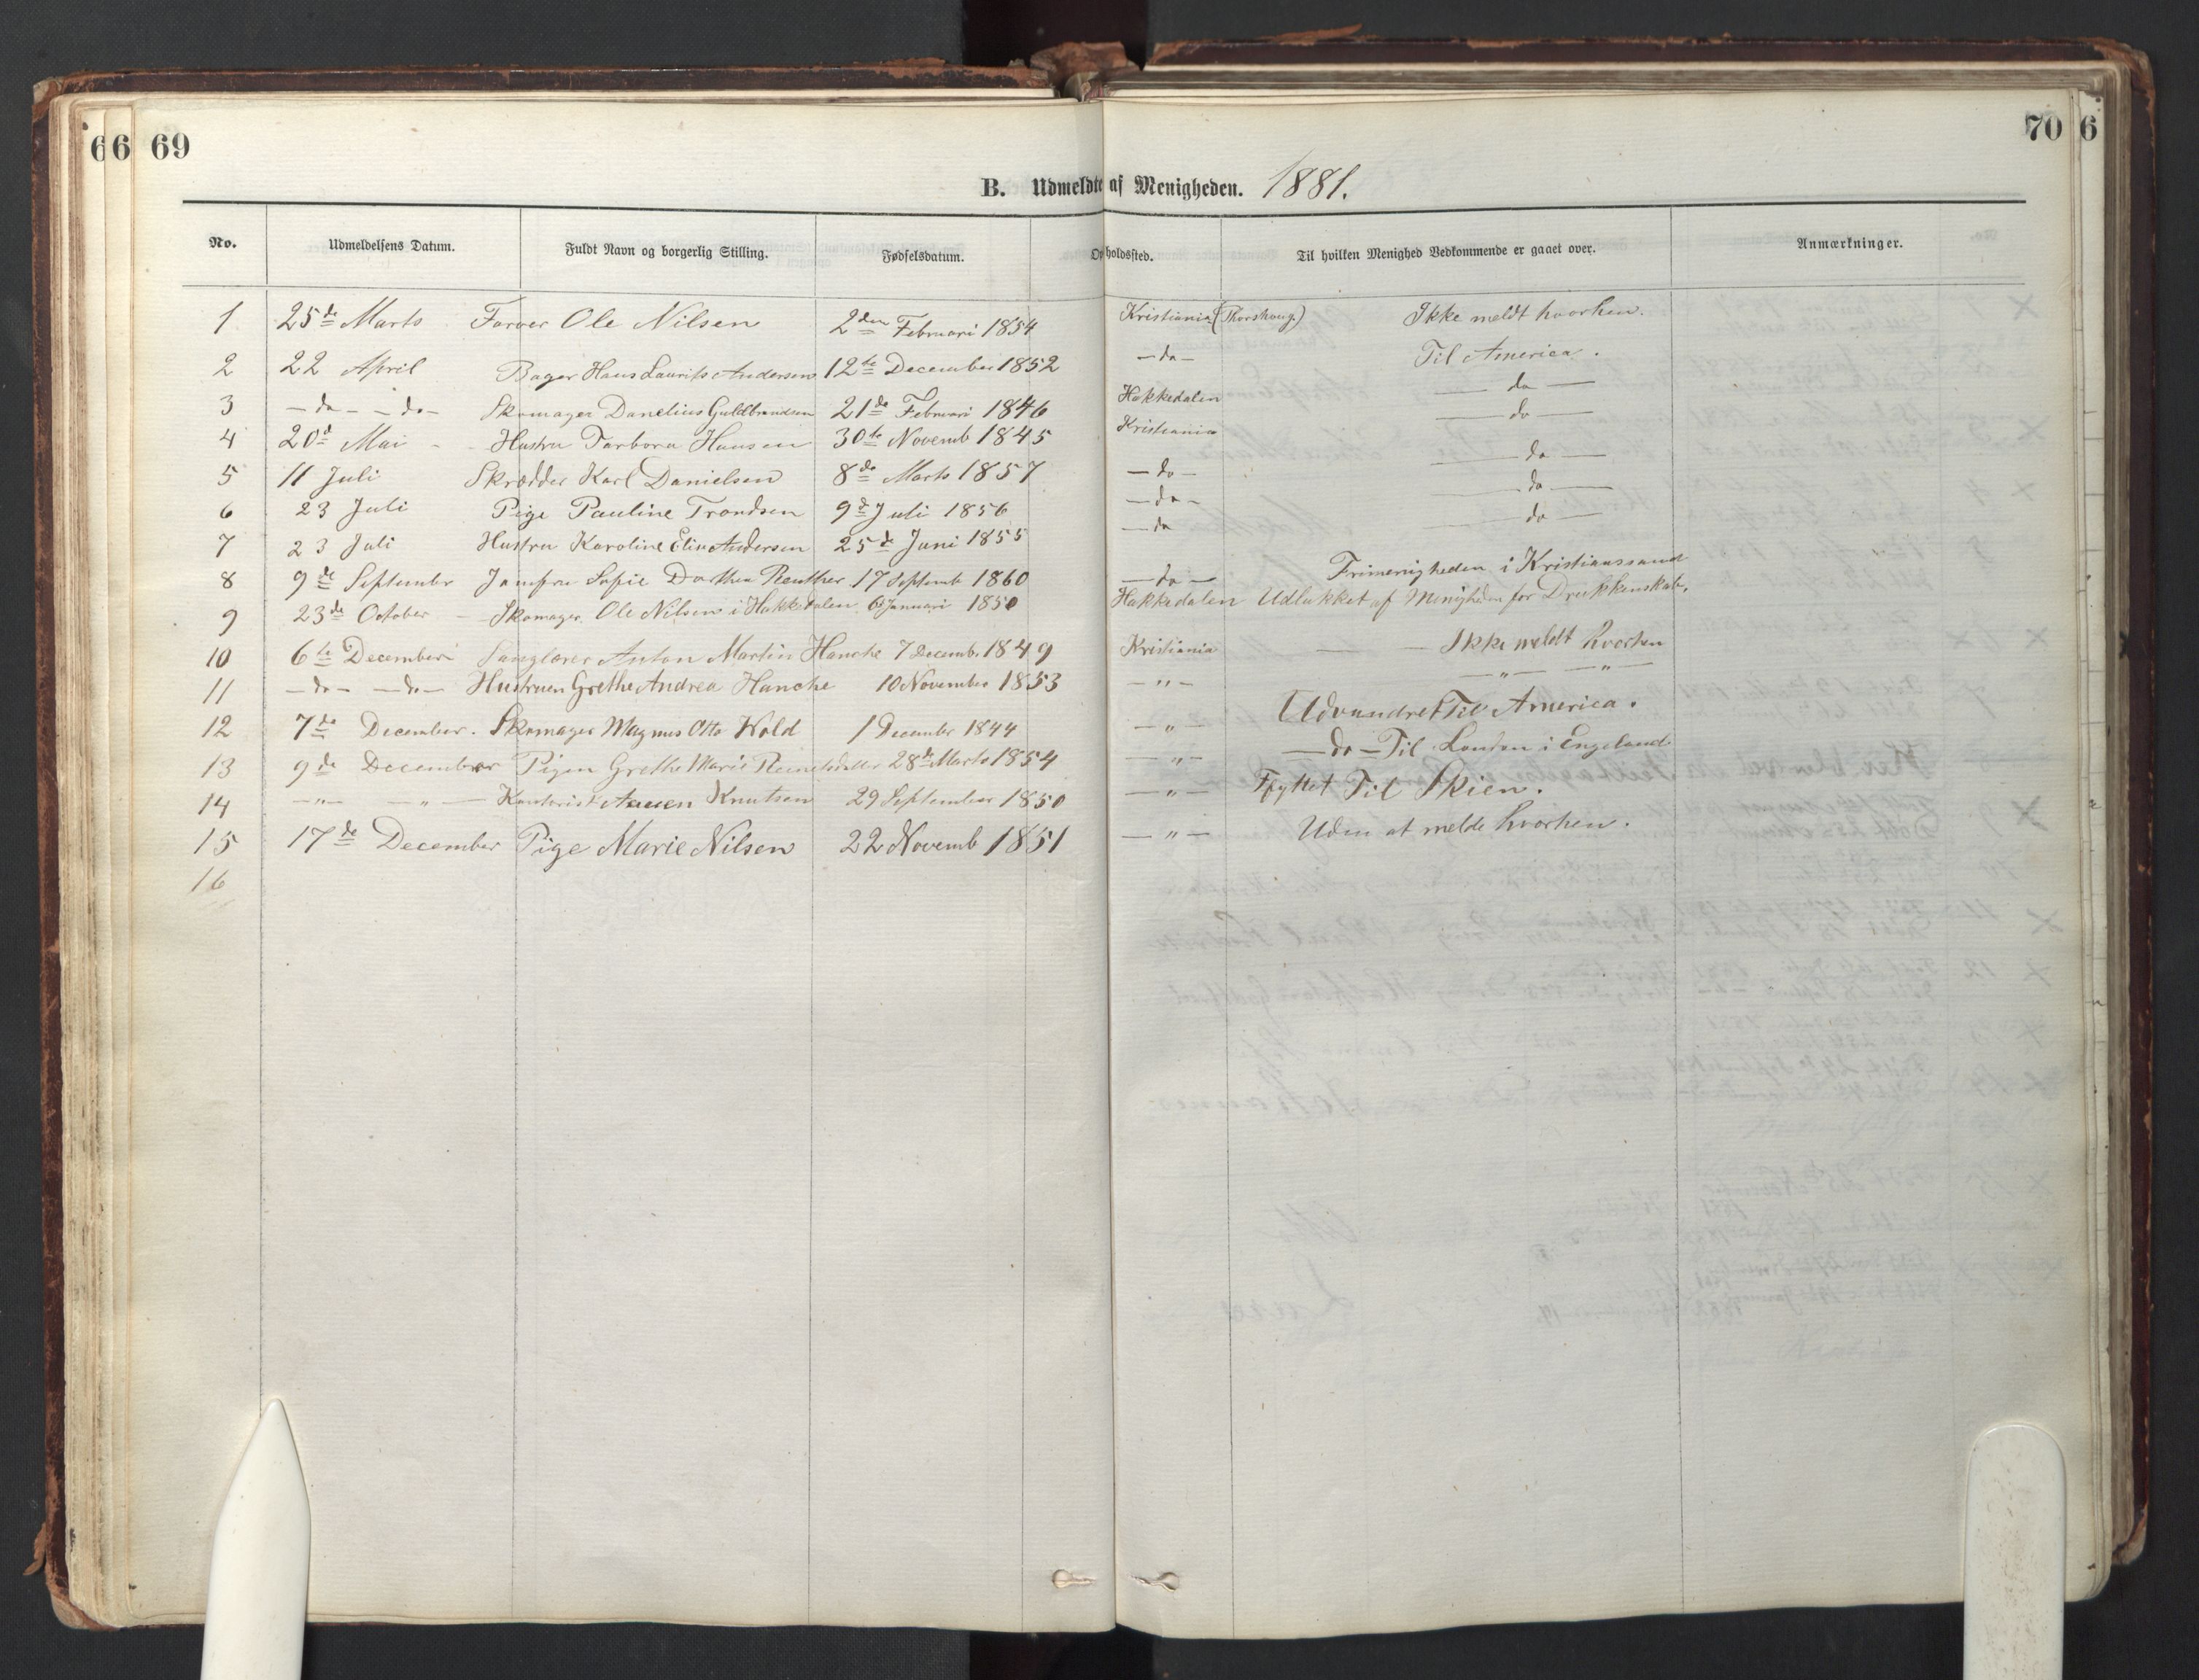 66 69 70 6
B. Udmeldte af Menigheden. 1881.
No. Udmeldelsens Datum. Fuldt Navn og borgerlig Stilling. Fødselsdatum. Opholdssted. Til hvilken Menighed Vedkommende er gaaet over. Anmærkninger.
1 25de Marts Farver Ole Nilsen 2den Februari 1854 Kristiania (Thorshaug.) Ikke meldt hvorhen.
2 22 April Bager Hans Laurits Andersen 12te December 1852 – do – Til America.
3 – do – – do – Skomager Danelius Guldbrandsen 21de Februari 1846 Hakkedalen — do —
4 20d Mai – Hustru Barbora Hansen 30te Novemb 1845 Kristiania — do —
5 11 Juli Skrædder Karl Danielsen 8de Marts 1857 – do – — do —
6 23 Juli Pige Pauline Trondsen 9d Juli 1856 – do – — do —
7 23 Juli Hustru Karoline Elise Andersen 25de Juni 1855 – do — do —
8 9de September Jomfru Sofie Dorthea Reuther 17 Septemb 1860 – do – Frimenigheden i Kristianssand
9 23de October – Skomager Ole Nilsen i Hakkedalen 6 Januari 1850 Hakkedalen Udlukket af Menigheden for Drukkenskab.
10 6te December Sanglærer Anton Martin Hanche 7 Decemb. 1849 Kristiania — — Ikke meldt hvorhen
11 – do – – do – Hustruen Grethe Andrea Hanche 10 November 1853 – " – – " –
12 7de December. Skomager Magnus Otto Wold 1 December 1844 – " – Udvandret Til America.
13 9de December Pigen Grethe Marie 28de Marts 1854 – " – – do – Til London i Engeland
14 – " – – " – Kontorist Knutsen 29 September 1850 – " – Flyttet Til Skien.
15 17de December Pige Marie Nilsen 22 Novemb 1851 – " – Uden at melde hvorhen.
16